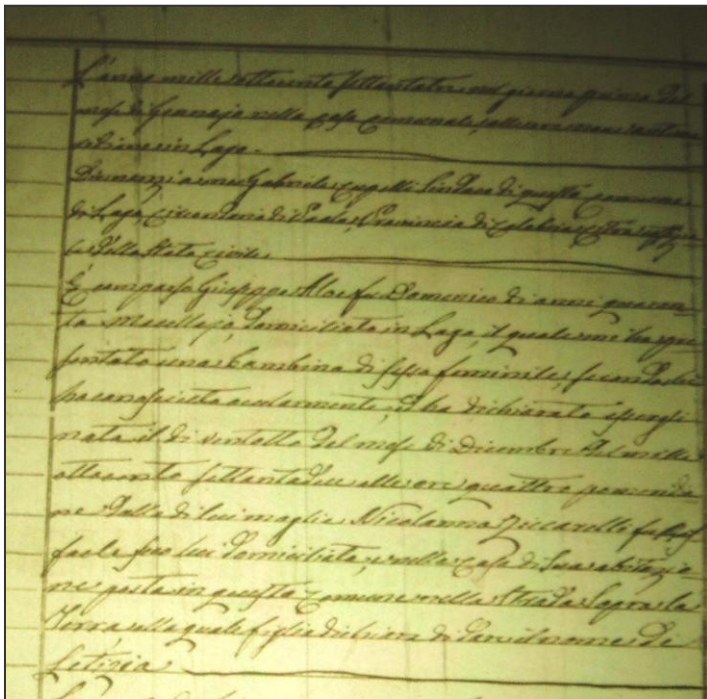 L'anno mille ottocento settantatre, nel giorno primo del
mese di Gennajo nella casa comunale, alle ore
in Lago.
Dinnanzi a me Gabriele Cupelli Sindaco di questo comune
di Lago, circondario di Paola, Provincia di Calabria Citra,
dello Stato civile.
È comparso Giuseppe Aloe fu Domenico di anni quaran-
ta Macellajo, domiciliato in Lago, il quale mi ha pre-
sentato una bambina di sesso feminile, secondo che
ho conosciuto ocularmente, ed ha dichiarato esser gli
nata il dì ventotto del mese di Dicembre del mille
ottocento settantadue alle ore quattro pomeridia-
ne dalla di lui moglie Nicolanna Ziccarelli fu Raf-
faele seco lui domiciliata, e nella casa di sua abitazio-
ne posta in questo comune nella Strada Sopra la
Terra, alla quale figlia dichiara di dare il nome di
Letizia